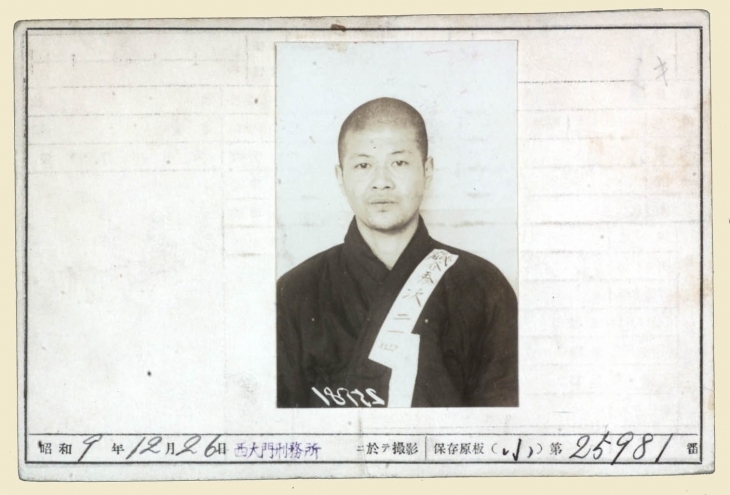 次二
25981
昭和9年12月26日 西大門刑務所 ニ於テ撮影 保存原板(小)第25981番